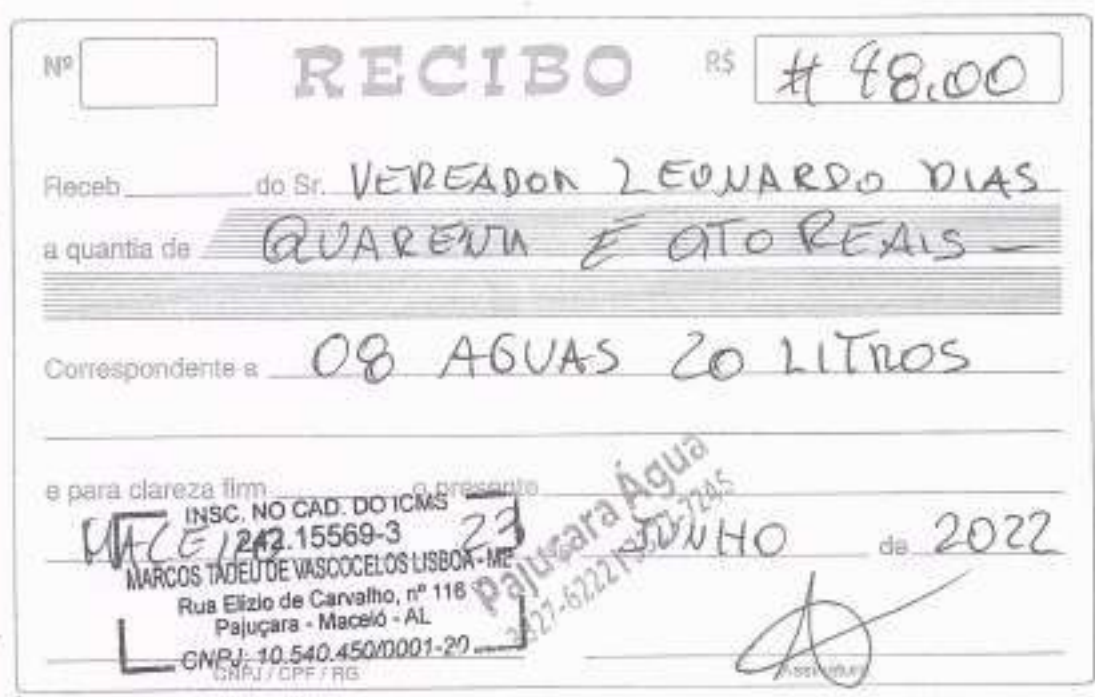 Nº RECIBO R$ # 48,00
Receb do Sr. VEREADOR LEONARDO DIAS
a quantia de QUARENTA E OITO REAIS —
Correspondente a 08 AGUAS 20 LITROS
e para clareza firm o presente
MACEIÓ 23 JUNHO de 2022
INSC. NO CAD. DO ICMS
242.15569-3
MARCOS TADEU DE VASCOCELOS LISBOA - ME
Rua Elizio de Carvalho, nº 116
Pajuçara - Maceió - AL
CNPJ: 10.540.450/0001-20
Pajuçara Água
CNPJ / CPF / RG
Assinatura